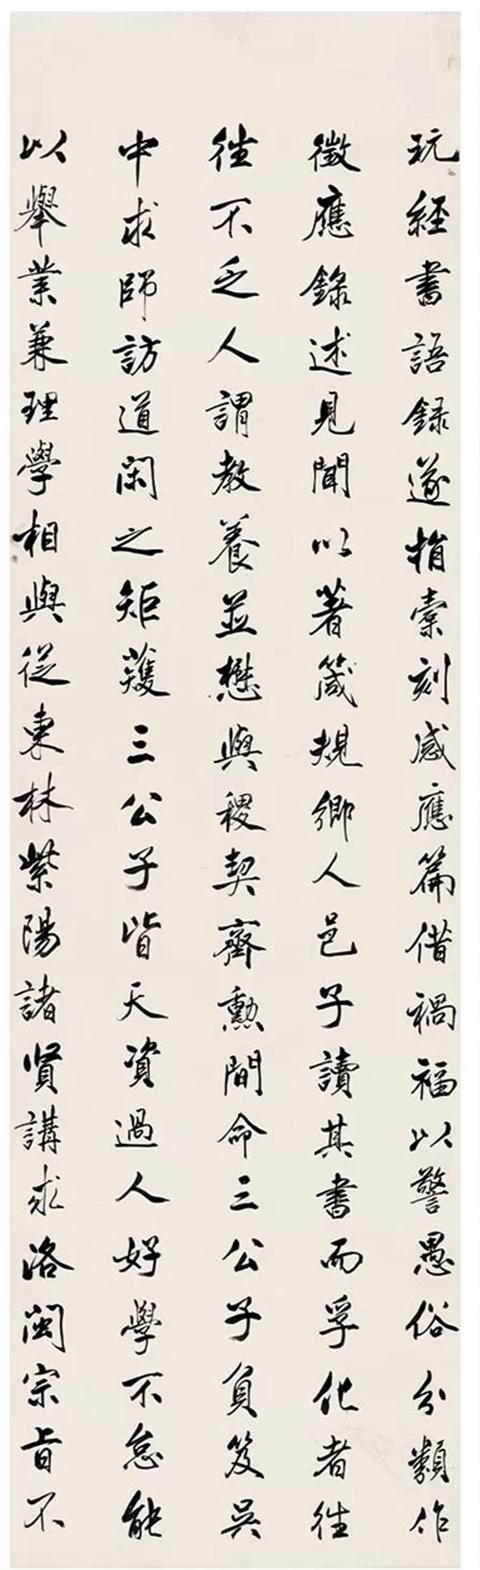 玩經書語錄遂捐橐刻感應篇借禍福以警愚俗分類作
徵應錄述見聞以著箴規鄉人邑子讀其書而孚化者往
往不乏人謂教養並懋與稷契齊勳間命三公子負笈吳
中求師訪道閑之矩蒦三公子皆天資過人好學不怠能
以舉業兼理學相與從東林紫陽諸賢講求洛閩宗旨不